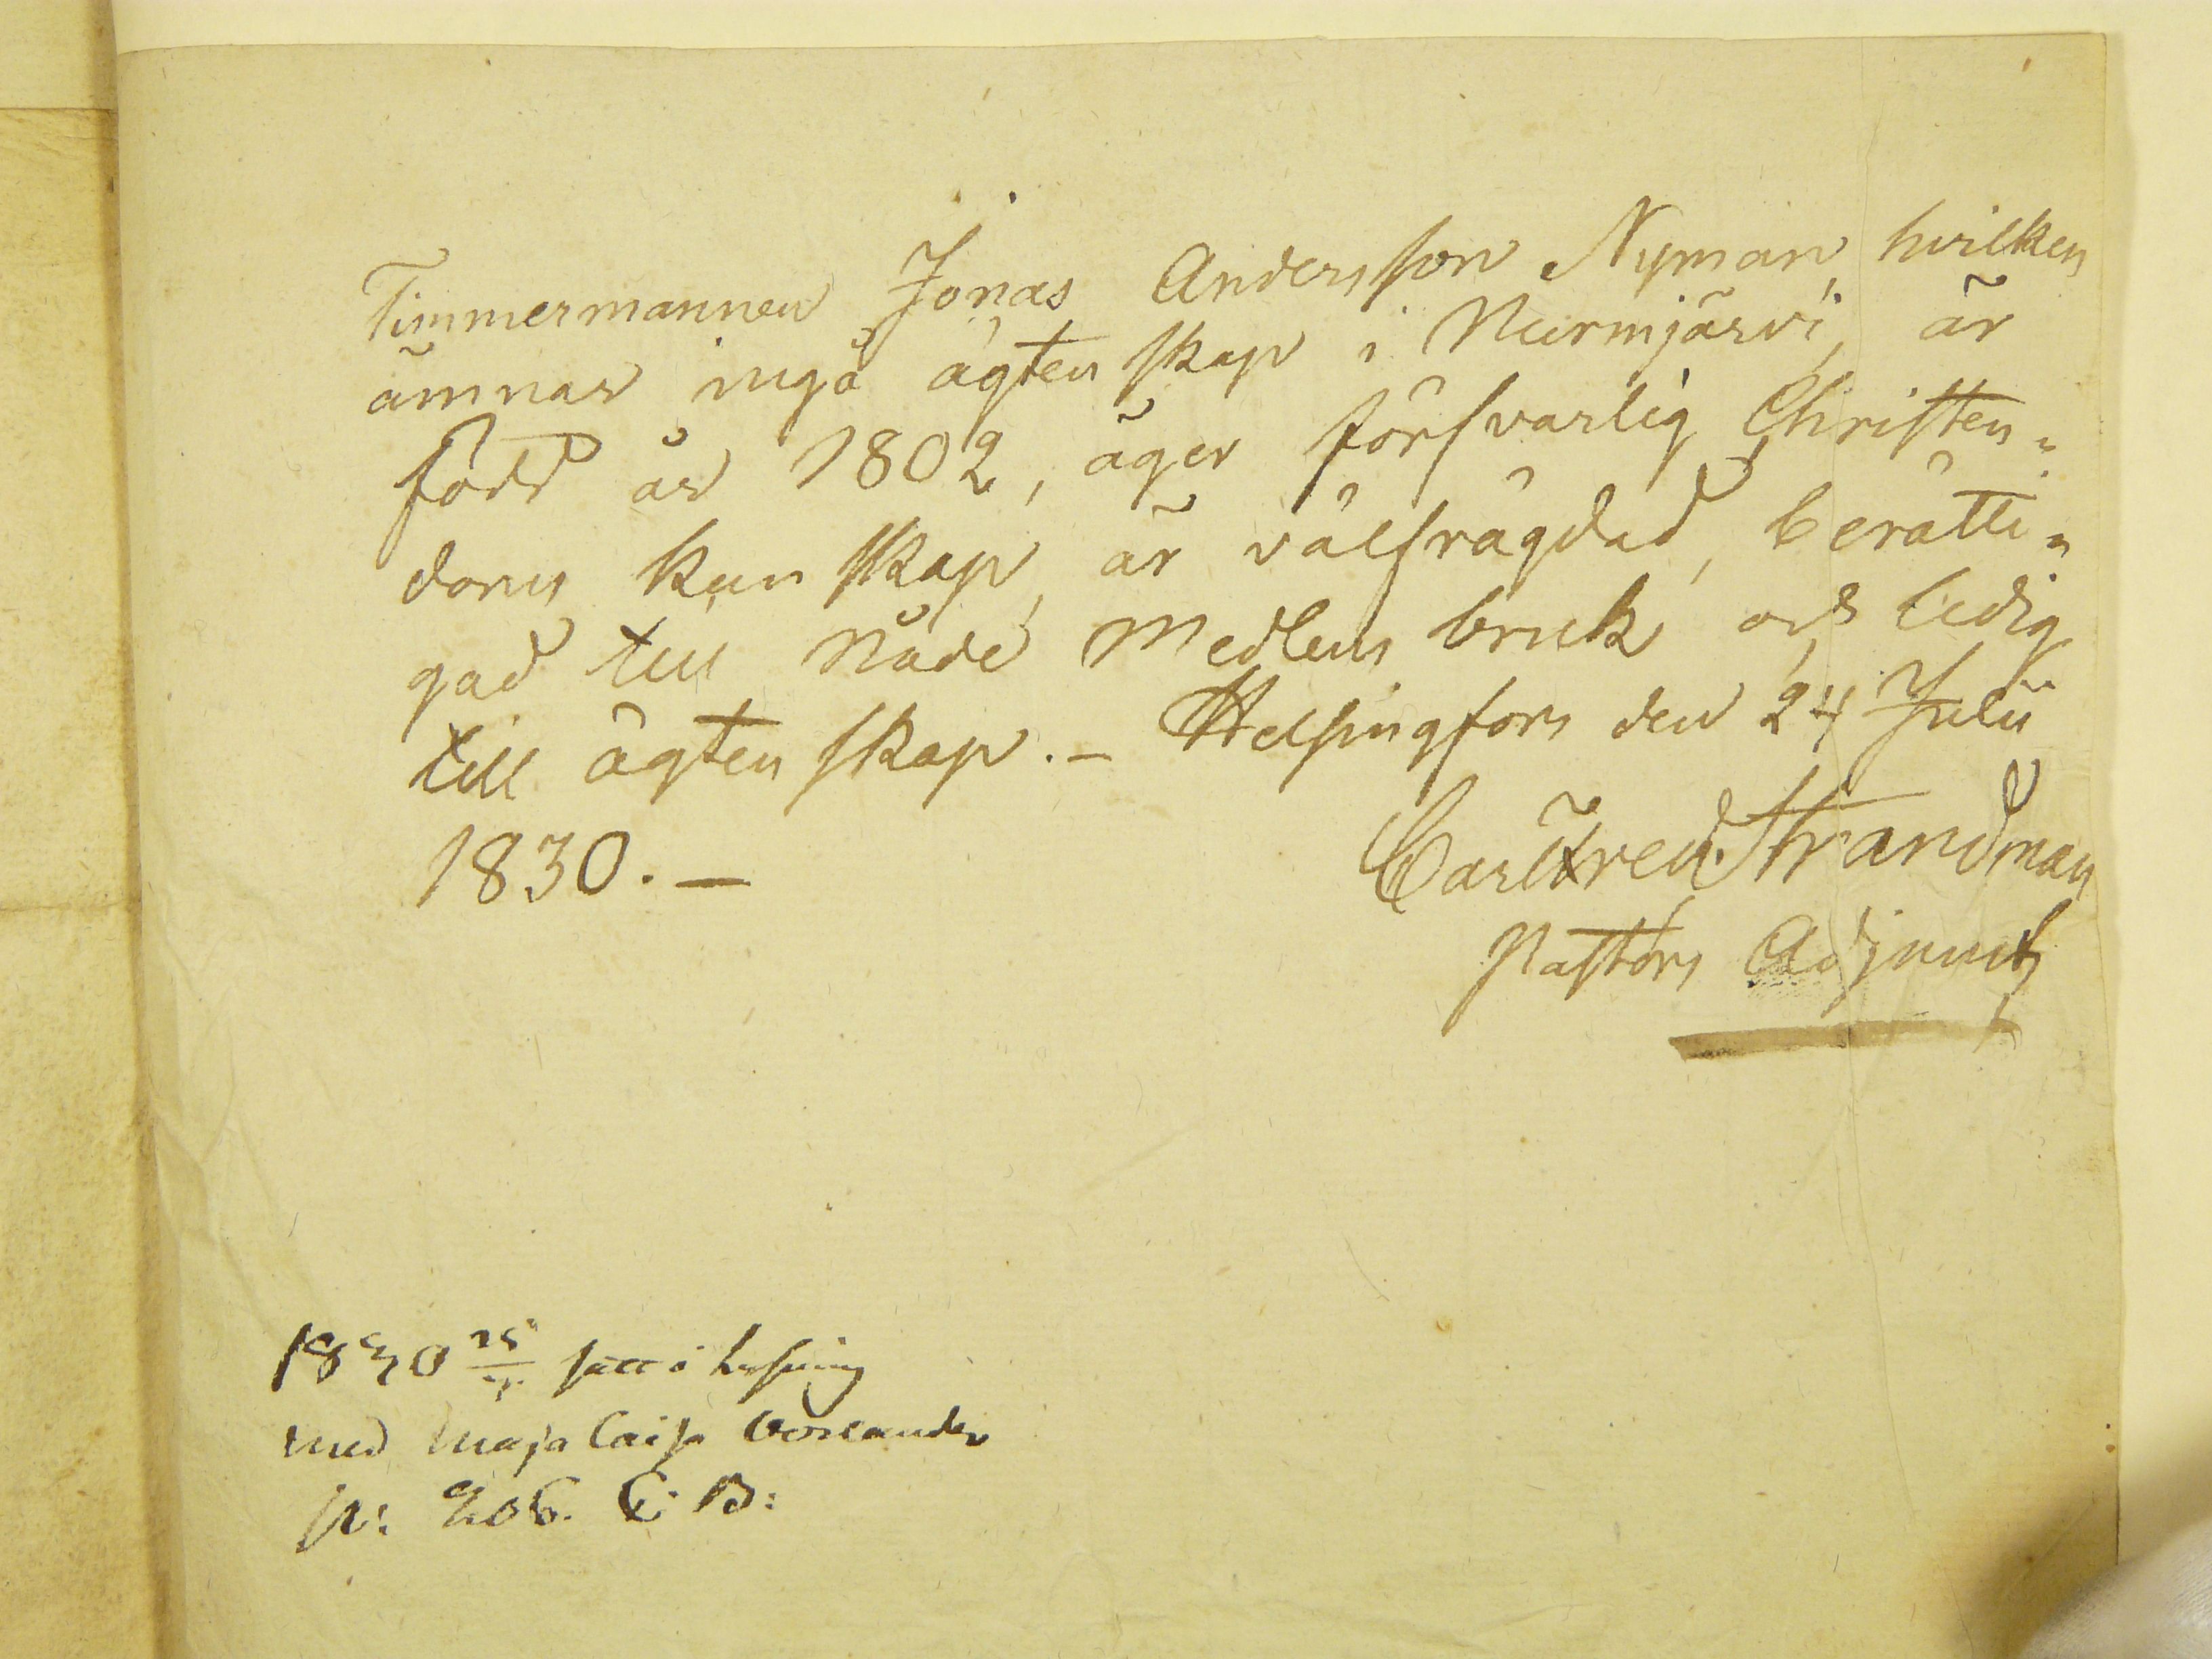 Timmermannen Jonas Andersson Nyman, hvilken
ämnar ingå ägtenskap i Nurmjärvi, är
född år 1802, äger försvarlig Christen-
doms kunskap, är välfrägdad, berätti-
gad till Nåde Medlens bruk och ledig
till ägtenskap. - Helsingfors den 24 Julii
1830. -
Carl Fred. Strandman
Pastors Adjunct
1830 25 i lysning
med Maja Caisa
p: 206. C: B: